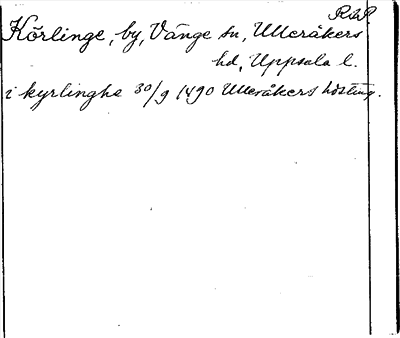 RW
Körlinge, by, Vänge sn, Ulleråkers
hd, Uppsala l.
i kyrlingha 30/9 1490 Ulleråkers hösting.